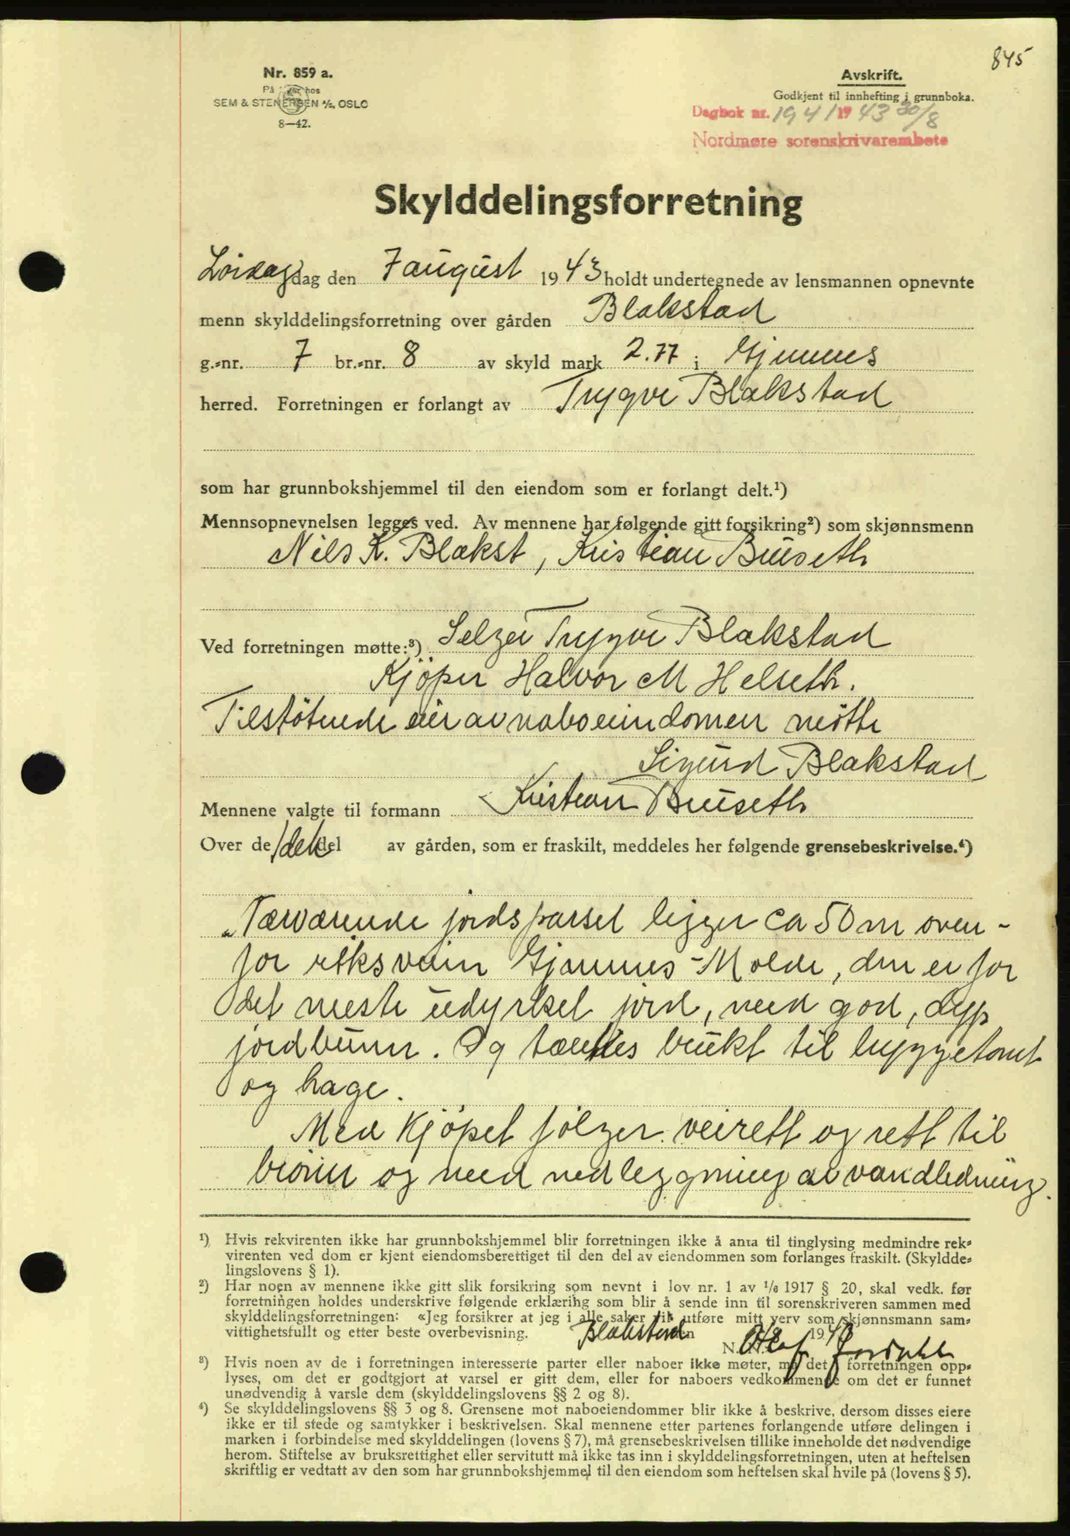 845
Nr. 859 a.
På lager hos
SEM & STENERSEN A/S, OSLO
8—42.
Avskrift.
Godkjent til innhefting i grunnboka.
Dagbok nr. 1941 1943 30/8
Nordmøre sorenskrivarembete
Skylddelingsforretning
Lördagsdag den 7 august 1943 holdt undertegnede av lensmannen opnevnte
menn skylddelingsforretning over gården Blakstad
g.-nr. 7 br.-nr. 8 av skyld mark 2.77 i Gjemnes
herred. Forretningen er forlangt av Trygve Blakstad
som har grunnbokshjemmel til den eiendom som er forlangt delt.¹)
Mennsopnevnelsen legges ved. Av mennene har følgende gitt forsikring²) som skjønnsmenn
Nils K. Blakst, Kristian Buseth
Ved forretningen møtte:³) Selger Trygve Blakstad
Kjöper Halvor M Helseth.
Tilstötende eier av naboeiendomen mötte
Sigurd Blakstad
Mennene valgte til formann Kristian Buseth
Over de/del del av gården, som er fraskilt, meddeles her følgende grensebeskrivelse.⁴)
„Nærværende jordsparsel ligger ca 50 m oven-
for riksveien Gjemnes-Molde, den er for
det meste udyrket jord, med god, dyp
jordbunn. Og tænkes brukt til byggetomt
og hage.
Med Kjöpet fölger veirett og rett til
brönn og med nedlegging av vandledning.
¹) Hvis rekvirenten ikke har grunnbokshjemmel blir forretningen ikke å anta til tinglysing medmindre rek-
virenten ved dom er kjent eiendomsberettiget til den del av eiendommen som forlanges fraskilt. (Skyldde-
lingslovens § 1).
²) Har noen av mennene ikke gitt slik forsikring som nevnt i lov nr. 1 av 1/6 1917 § 20, skal vedk. før
forretningen holdes underskrive følgende erklæring som blir å sende inn til sorenskriveren sammen med
skylddelingsforretningen: «Jeg forsikrer at jeg i alle saker vil utføre mitt verv som skjønnsmann sam-
vittighetsfullt og etter beste overbevisning. Blakstad 19
N. Olaf
³) Hvis noen av de i forretningen interesserte parter eller naboer ikke møter, må det i forretningen opp-
lyses, om det er godtgjort at varsel er gitt dem, eller for naboers vedkommende om det er funnet
unødvendig å varsle dem (skylddelingslovens §§ 2 og 8).
⁴) Se skylddelingslovens §§ 3 og 8. Grensene mot naboeiendommer blir ikke å beskrive, dersom disses eiere
ikke er til stede og samtykker i beskrivelsen. Skal mennene etter partenes forlangende utføre delingen i
marken i forbindelse med skylddelingen (lovens § 7), må grensebeskrivelsen tillike inneholde det nødvendige
herom. Stiftelse av bruksrettighet eller servitutt må ikke tas inn i skylddelingsforretningen, uten at heftelsen
skriftlig er vedtatt av den som har grunnbokshjemmel til den eiendom som heftelsen skal hvile på (lovens § 5).